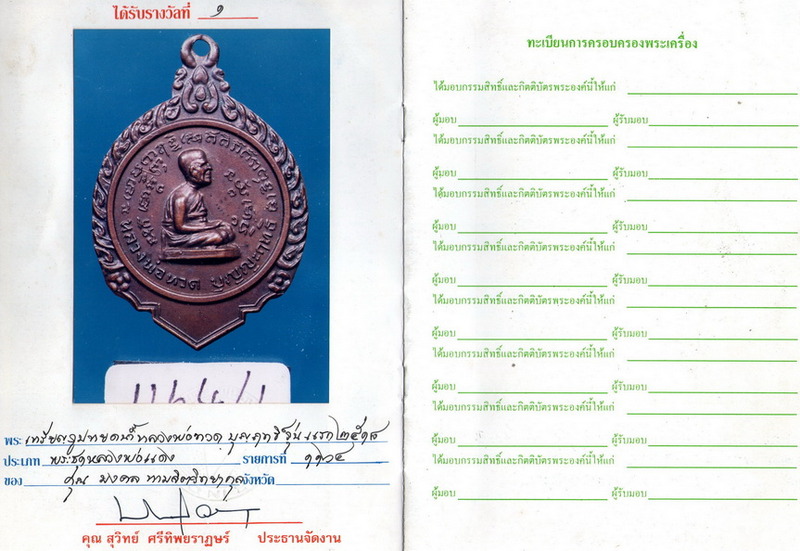 ได้รับรางวัลที่ ๑
หลวงพ่อทวด
พระ เหรียญรูปหยดน้ำหลวงพ่อทวด บุญฤทธิ์รุ่นแรก ๒๕๑๘
ประเภท พระชุดหลวงพ่อแดง รายการที่ ๑๑๐๔
ของ คุณ มงคล จังหวัด
คุณ สุวิทย์ ศรีทิพยราฎษร์ ประธานจัดงาน
ทะเบียนการครอบครองพระเครื่อง
ได้มอบกรรมสิทธิ์และกิตติบัตรพระองค์นี้ให้แก่
ผู้มอบ ผู้รับมอบ
ได้มอบกรรมสิทธิ์และกิตติบัตรพระองค์นี้ให้แก่
ผู้มอบ ผู้รับมอบ
ได้มอบกรรมสิทธิ์และกิตติบัตรพระองค์นี้ให้แก่
ผู้มอบ ผู้รับมอบ
ได้มอบกรรมสิทธิ์และกิตติบัตรพระองค์นี้ให้แก่
ผู้มอบ ผู้รับมอบ
ได้มอบกรรมสิทธิ์และกิตติบัตรพระองค์นี้ให้แก่
ผู้มอบ ผู้รับมอบ
ได้มอบกรรมสิทธิ์และกิตติบัตรพระองค์นี้ให้แก่
ผู้มอบ ผู้รับมอบ
ได้มอบกรรมสิทธิ์และกิตติบัตรพระองค์นี้ให้แก่
ผู้มอบ ผู้รับมอบ
ได้มอบกรรมสิทธิ์และกิตติบัตรพระองค์นี้ให้แก่
ผู้มอบ ผู้รับมอบ